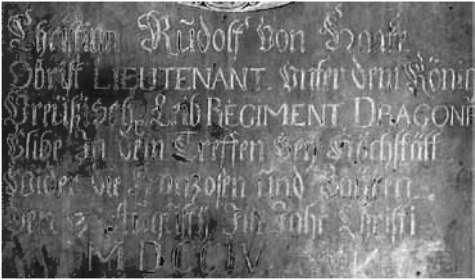 Christian Rudolff von Haake
Obrist LIEUTENANT. unter dem König
Preüßisch. Leib REGIMENT DRAGONR
blibe In dem Treffen bey Höchstätt
wider die Franzosen und Bayern
den Augusty Im Jahr Christi
MDCCIV